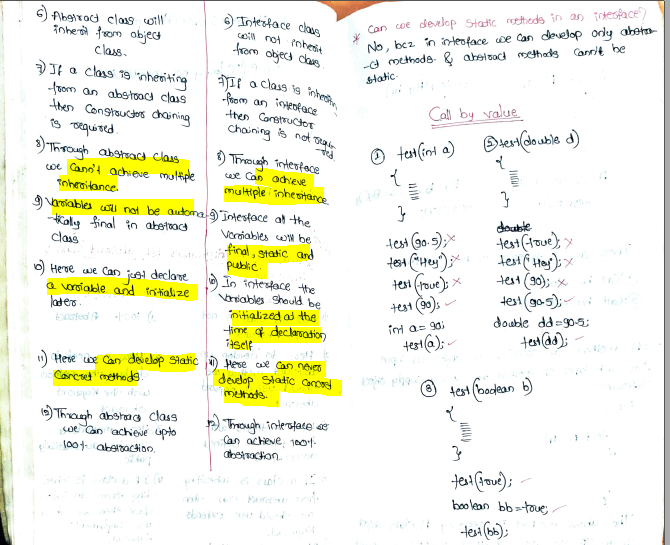 6) Abstract class will
inherit from object
class.
7) If a class is inheriting
from an abstract class
then constructor chaining
is required.
8) Through abstract class
we Cann't achieve multiple
inheritance.
9) Variables will not be automa-
-tically final in abstract
class
10) Here we can just declare
a variable and initialize
later.
11) Here we can develop static
Concret methods.
12) Through abstract class
we can achieve upto
100% abstraction.
6) Interface class
will not inherit
from object class
7) If a class is inheritin
from an interface
then constructor
chaining is not requi
red
8) Through interface
we can achieve
multiple inheritance.
9) Interface all the
variables will be
final, static and
public.
10) In interface the
variables should be
initialized at the
time of declaration
itself
11) Here we can never
develop static concret
methods.
12) Through interface we
can achieve 100%
abstraction.
* Can we develop static methods in an interface?
No, bcz in interface we can develop only abstra-
-ct methods. & abstract methods cann't be
static.
Call by value
1 test(int a)
{
}
test(90.5); ×
test("Hey"); ×
test(true); ×
test(90); ✓
int a = 90;
test(a); ✓
2 test(double d)
{
}
double
test(true); ×
test("Hey"); ×
test(90); ×
test(90.5); ✓
double dd=90.5;
test(dd); ✓
3 test(boolean b)
{
}
test(true); ✓
boolean bb=true; ✓
test(bb);